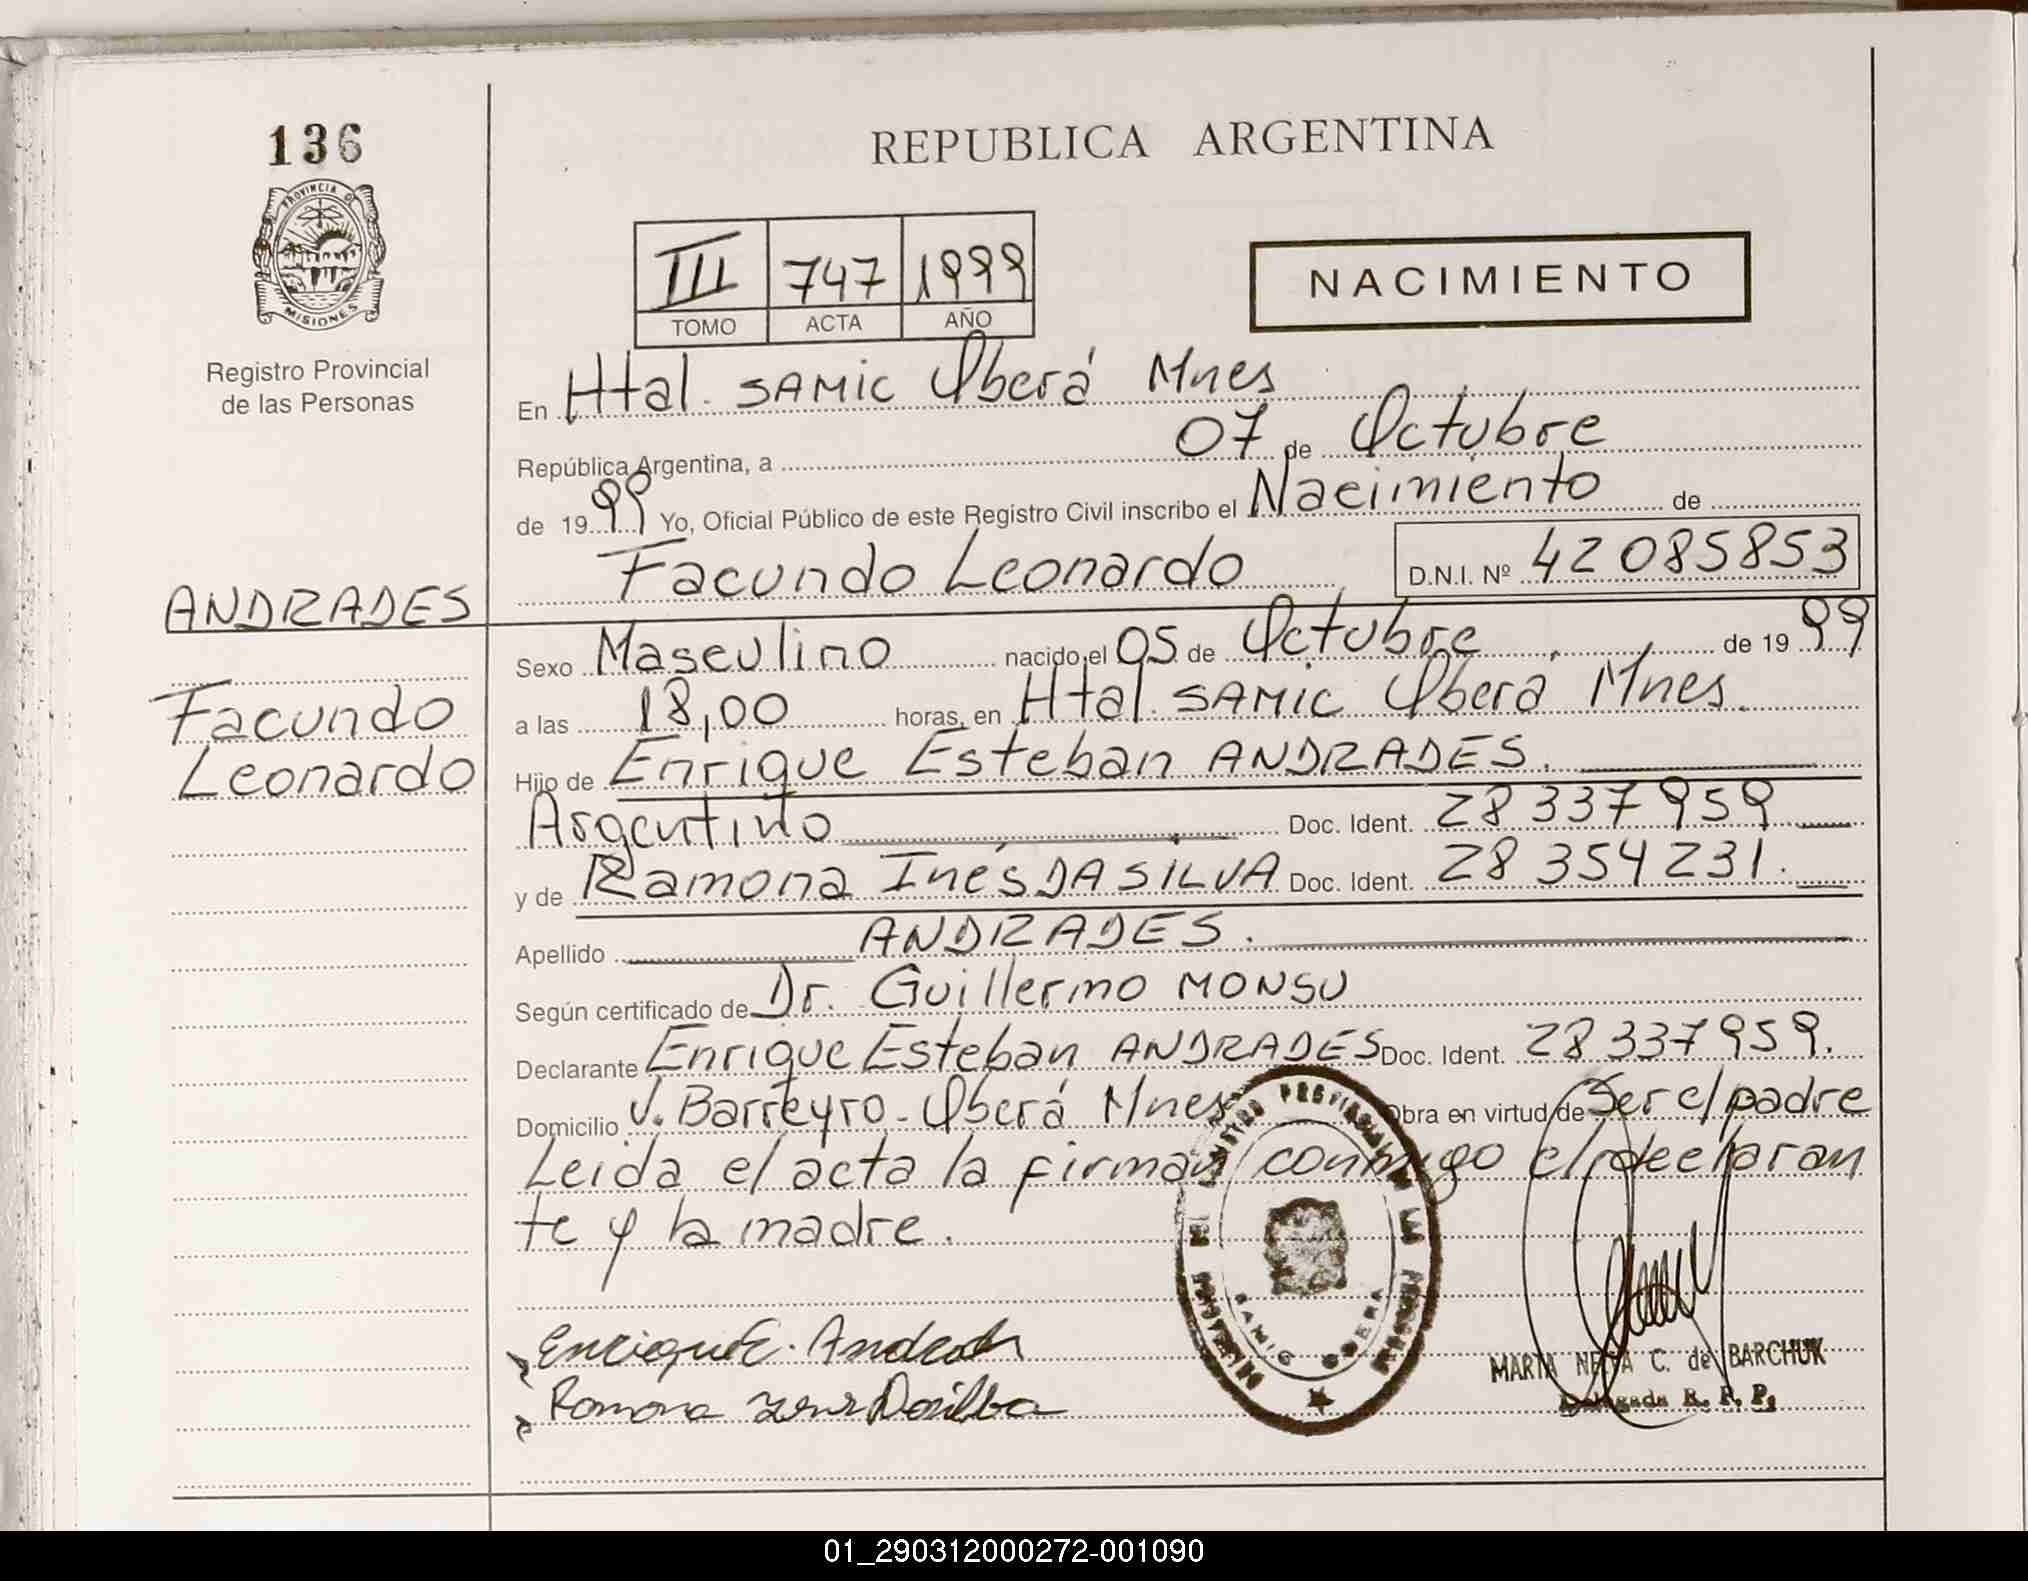 136
PROVINCIA DE
MISIONES
Registro Provincial
de las Personas
ANDRADES
Facundo
Leonardo
REPUBLICA ARGENTINA
III 747 1999
TOMO ACTA AÑO
NACIMIENTO
En Htal. SAMIC Oberá Mnes
República Argentina, a 07 de Octubre
de 1999 Yo, Oficial Público de este Registro Civil inscribo el Nacimiento de
Facundo Leonardo D.N.I. Nº 42 085853
Sexo Masculino nacido el 05 de Octubre de 1999
a las 18,00 horas, en Htal. SAMIC Oberá Mnes.
Hijo de Enrique Esteban ANDRADES.
Argentino Doc. Ident. 28 337 959
y de Ramona Inés DA SILVA Doc. Ident. 28 354 231.
Apellido ANDRADES.
Según certificado de Dr. Guillermo MONSU
Declarante Enrique Esteban ANDRADES Doc. Ident. 28 337 959.
Domicilio V. Barreyro - Oberá Mnes Obra en virtud de Ser el padre
Leida el acta la firman conmigo el declaran
te y la madre.
Enrique E. Andrades
Ramona Ines Dasilba
SAMIC OBERA
MARTA C. de BARCHUK
Delegada R. P. P.
01_290312000272-001090